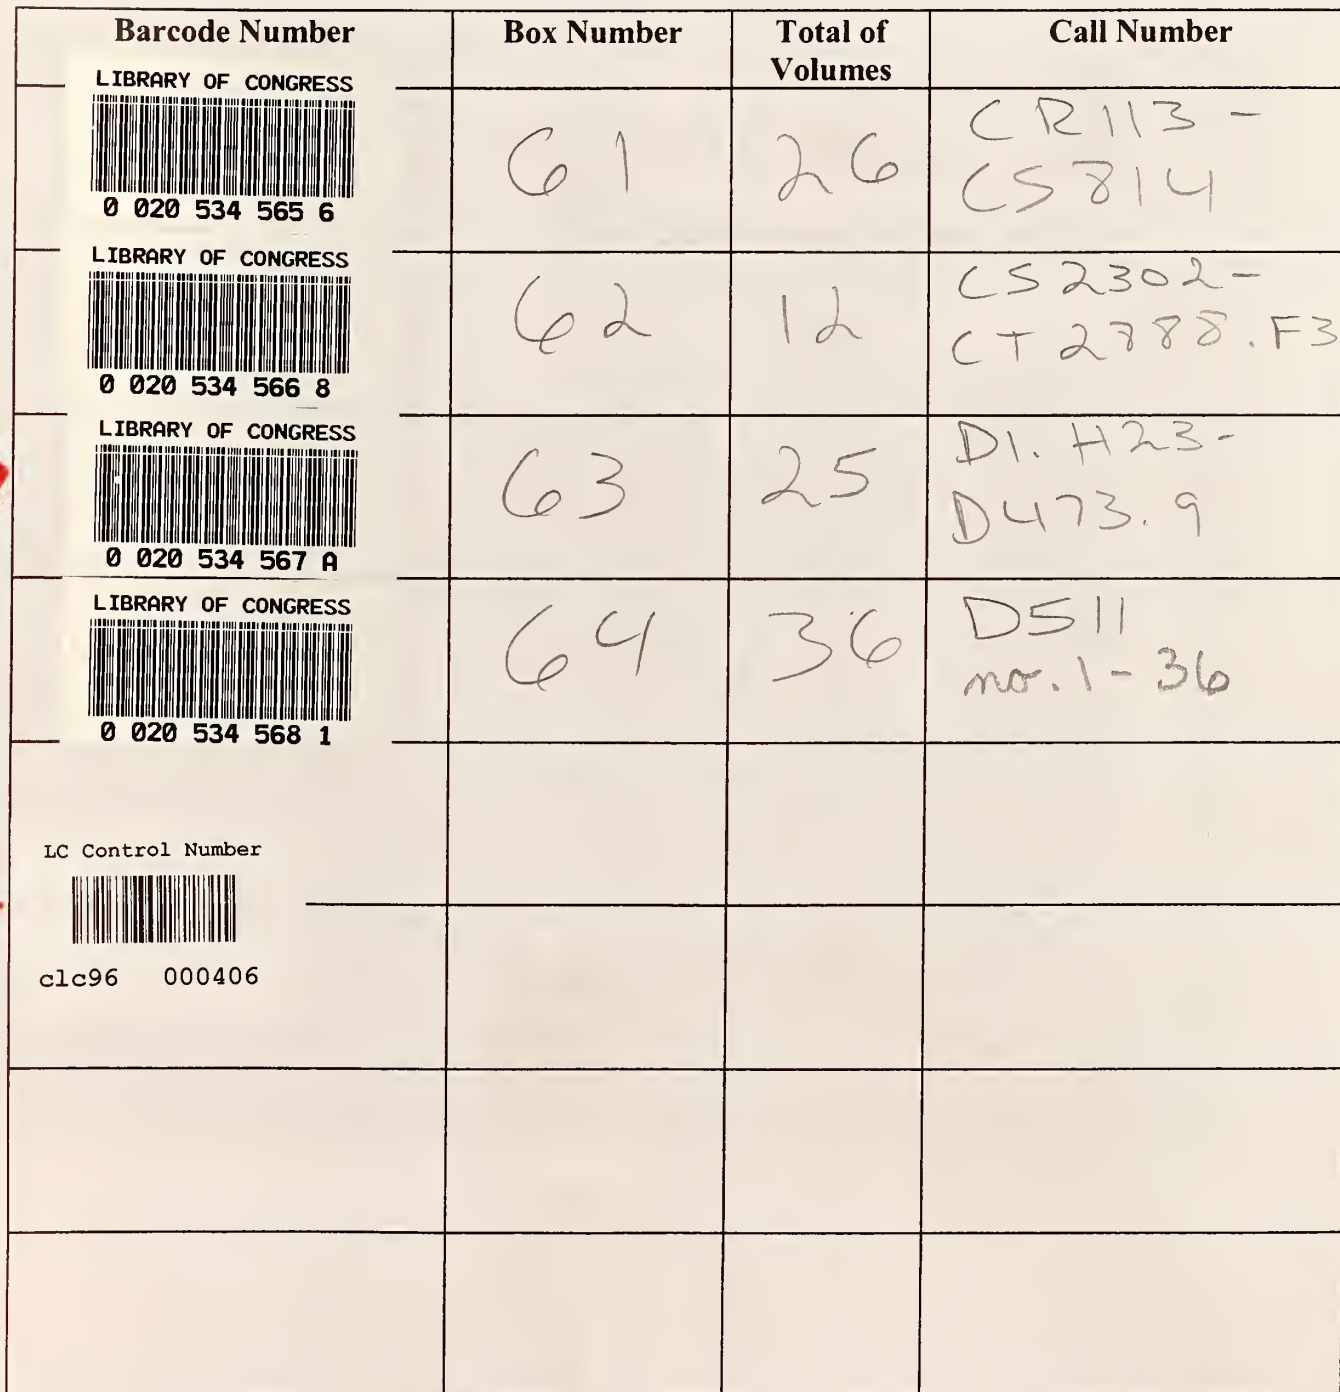 Barcode Number
Box Number
Total of
Volumes
Call Number
LIBRARY OF CONGRESS
0 020 534 565 6
61
26
CR113 -
CS814
LIBRARY OF CONGRESS
0 020 534 566 8
62
12
CS2302-
CT2788.F3
LIBRARY OF CONGRESS
0 020 534 567 A
63
25
D1. H23-
D473.9
LIBRARY OF CONGRESS
0 020 534 568 1
64
36
D511
no. 1 - 36
LC Control Number
clc96 000406